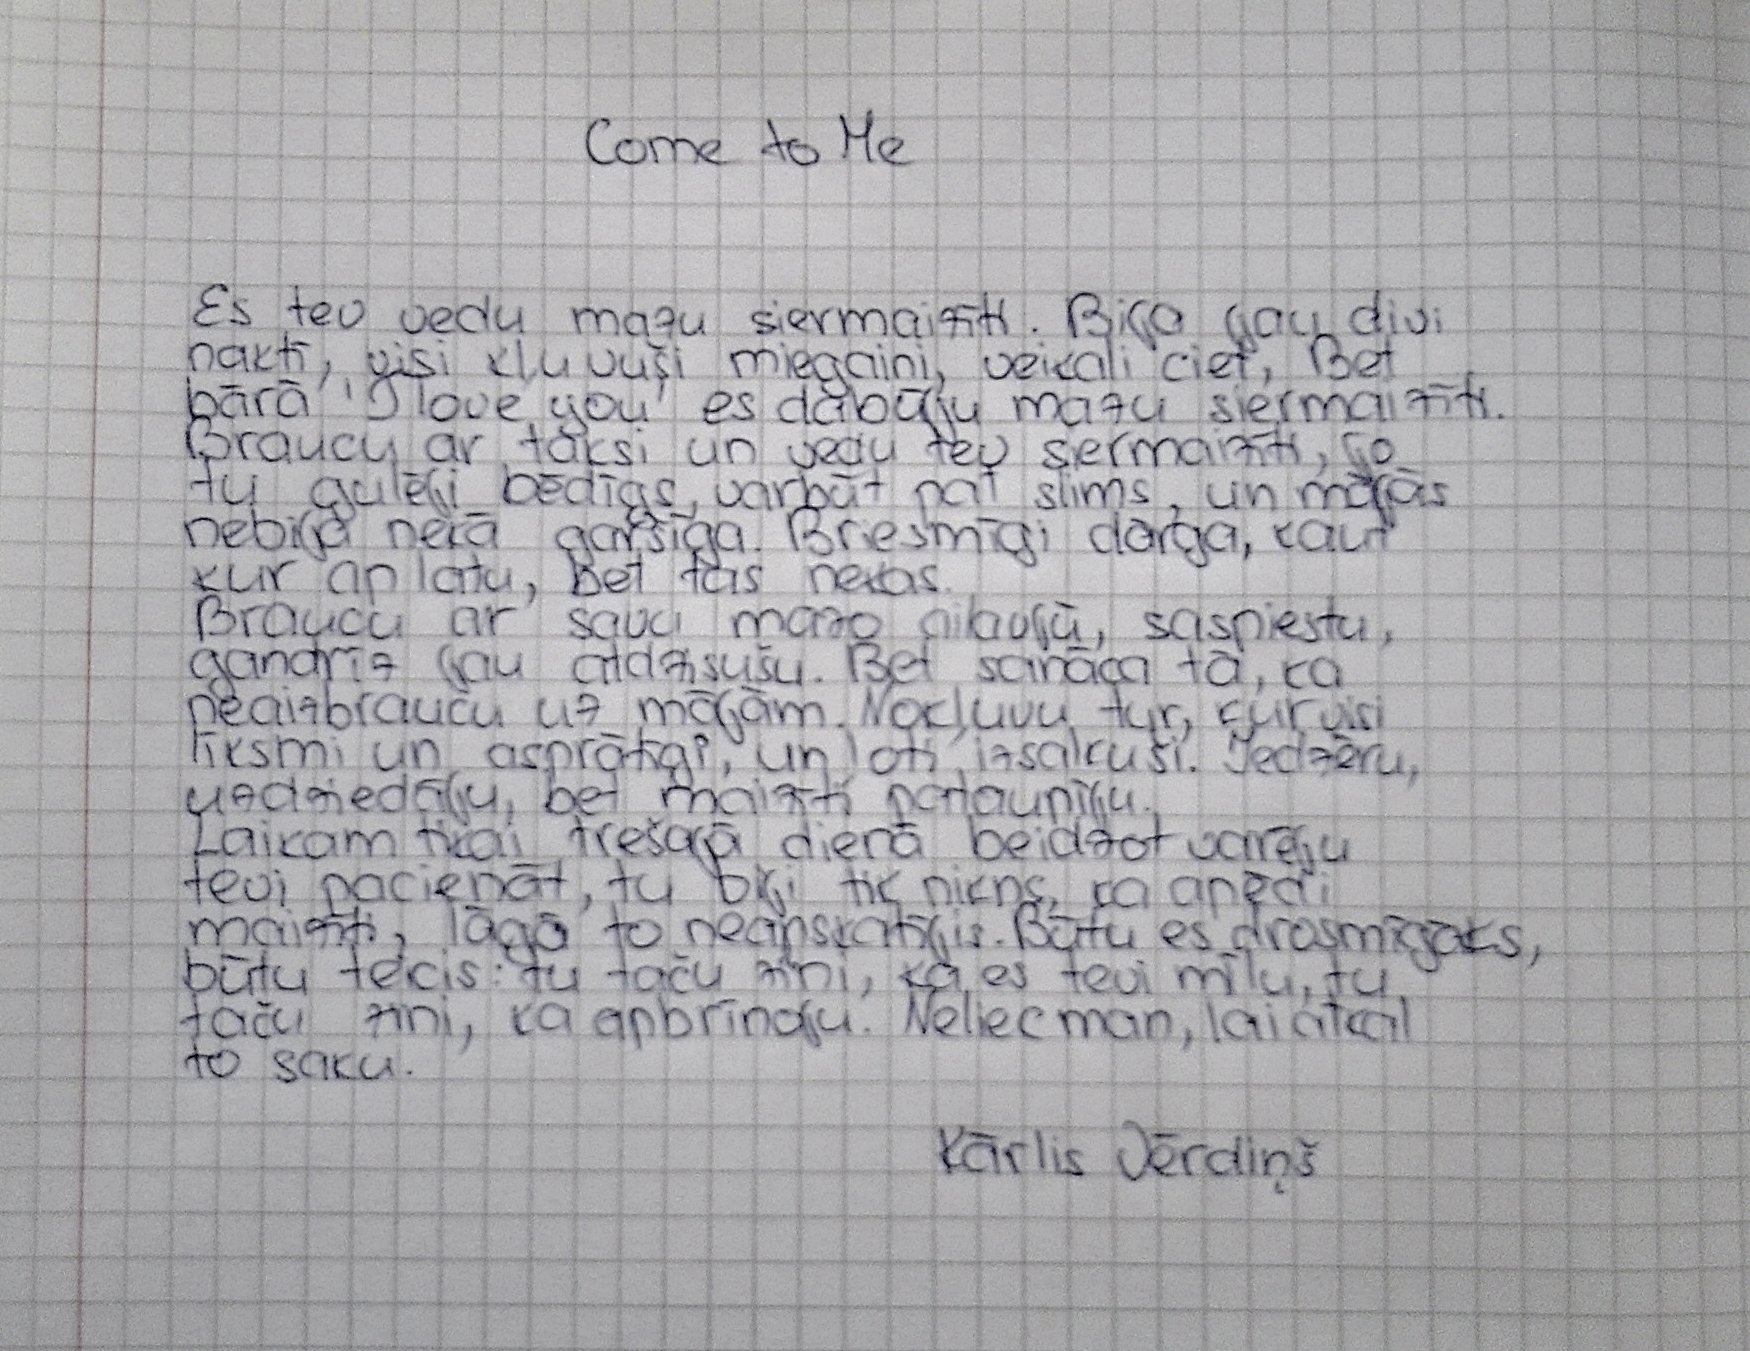 Come to Me
Es tev vedu mazu siermaizīti. Bija jau divi
naktī, visi kļuvuši miegaini, veikali ciet, Bet
bārā 'I love you' es dabūju mazu siermaizīti.
Braucu ar taksi un vedu tev siermaizīti, jo
tu gulēji bēdīgs, varbūt pat slims, un mājās
nebija nekā garšīga. Briesmīgi dārga, kaut
kur ap latu, bet tas nekas.
Braucu ar savu mazo aiļavjū, saspiestu,
gandrīz jau atdzisušu. Bet sanāca tā, ka
neaizbraucu uz mājām. Nokļuvu tur, kur visi
līksmi un asprātīgi, un ļoti izsalkuši. Iedzēru,
uzdziedāju, bet maizīti pataupīju.
Laikam tikai trešajā dienā beidzot varēju
tevi pacienāt, tu biji tik nikns, ka apēdi
maizīti, lāgā to neapskatījis. Būtu es drosmīgāks,
būtu teicis: tu taču zini, ka es tevi mīlu, tu
taču zini, ka apbrīnoju. Neliec man, lai atkal
to saku.
Kārlis Vērdiņš